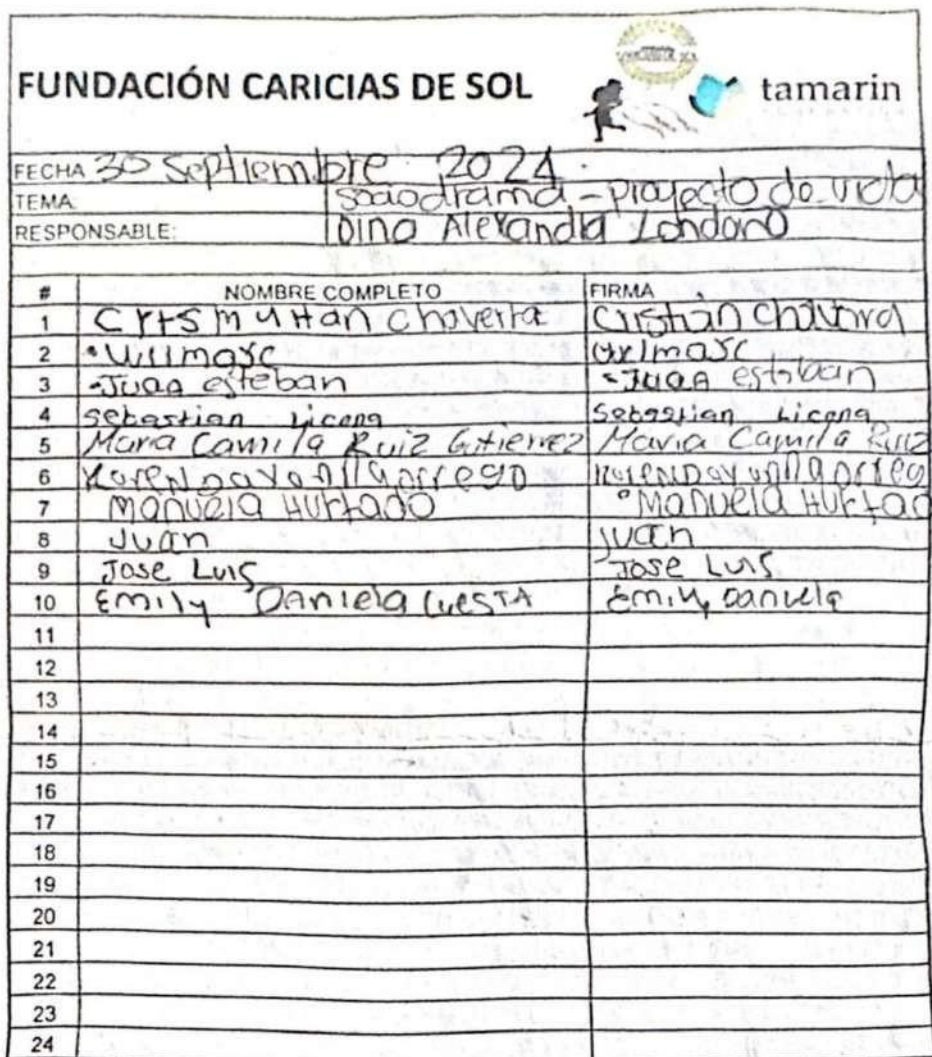 FUNDACIÓN CARICIAS DE SOL
tamarin
FECHA 30 Septiembre 2024
TEMA: sociodrama - proyecto de vida
RESPONSABLE: Dina Alexandra Londoño
# NOMBRE COMPLETO FIRMA
1 Chaverra Cristian
2 Wilmarc
3 Juan esteban Juan esteban
4 sebastian Licona Sebastian Licona
5 Maria Camila Ruiz Gutierrez Maria Camila Ruiz
6 Karen Dayana
7 Manuela Hurtado Manuela Hurtad
8 Juan juan
9 Jose Luis Jose Luis
10 Emily Daniela CUESTA Emily Daniela
11
12
13
14
15
16
17
18
19
20
21
22
23
24